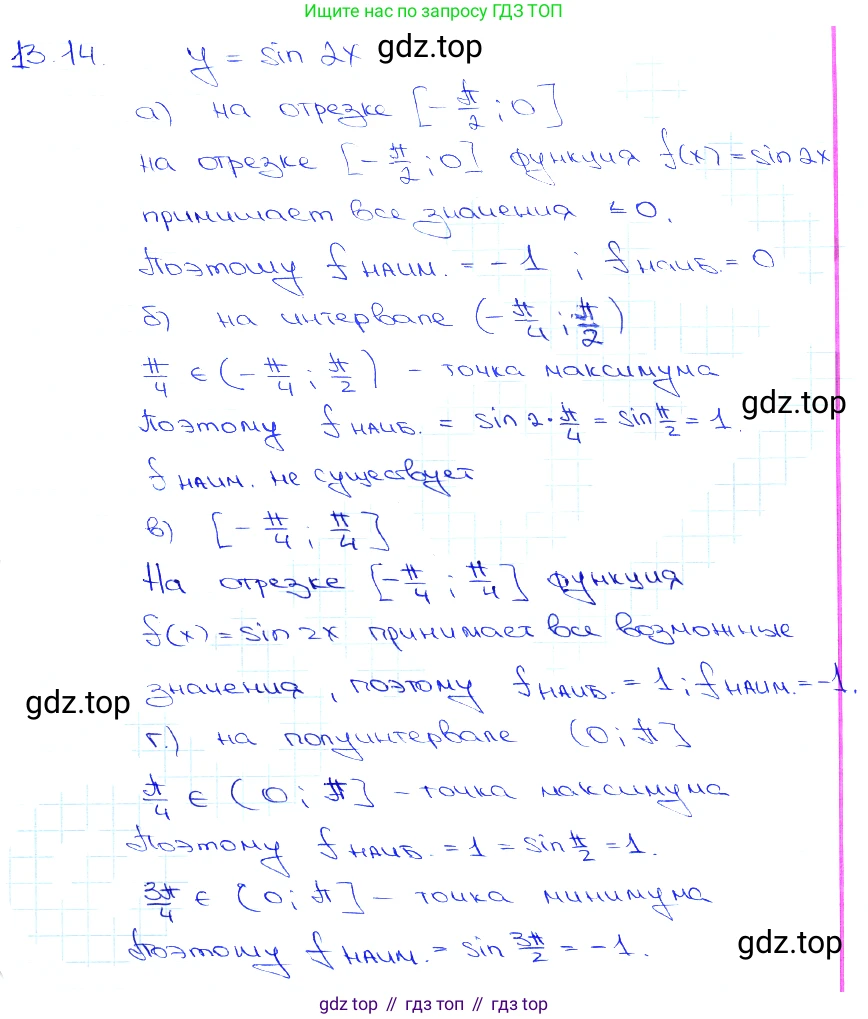 Ищите нас по запросу ГДЗ ТОП
13.14. y = sin 2x gdz.top
а) на отрезке [-π/2; 0]
на отрезке [-π/2; 0] функция f(x) = sin 2x
принимает все значения ≤ 0.
Поэтому f наим. = -1 ; f наиб. = 0
б) на интервале (-π/4; π/2)
π/4 ∈ (-π/4; π/2) - точка максимума
gdz.top
Поэтому f наиб. = sin 2·π/4 = sin π/2 = 1.
f наим. не существует
в) [-π/4; π/4]
На отрезке [-π/4; π/4] функция
f(x) = sin 2x принимает все возможные
значения, поэтому f наиб. = 1; f наим. = -1.
gdz.top
г.) на полуинтервале (0; π]
π/4 ∈ (0; π] - точка максимума
Поэтому f наиб. = 1 = sin π/2 = 1.
3π/4 ∈ (0; π] - точка минимума
Поэтому f наим. = sin 3π/2 = -1.
gdz.top
gdz top // гдз топ // gdz top